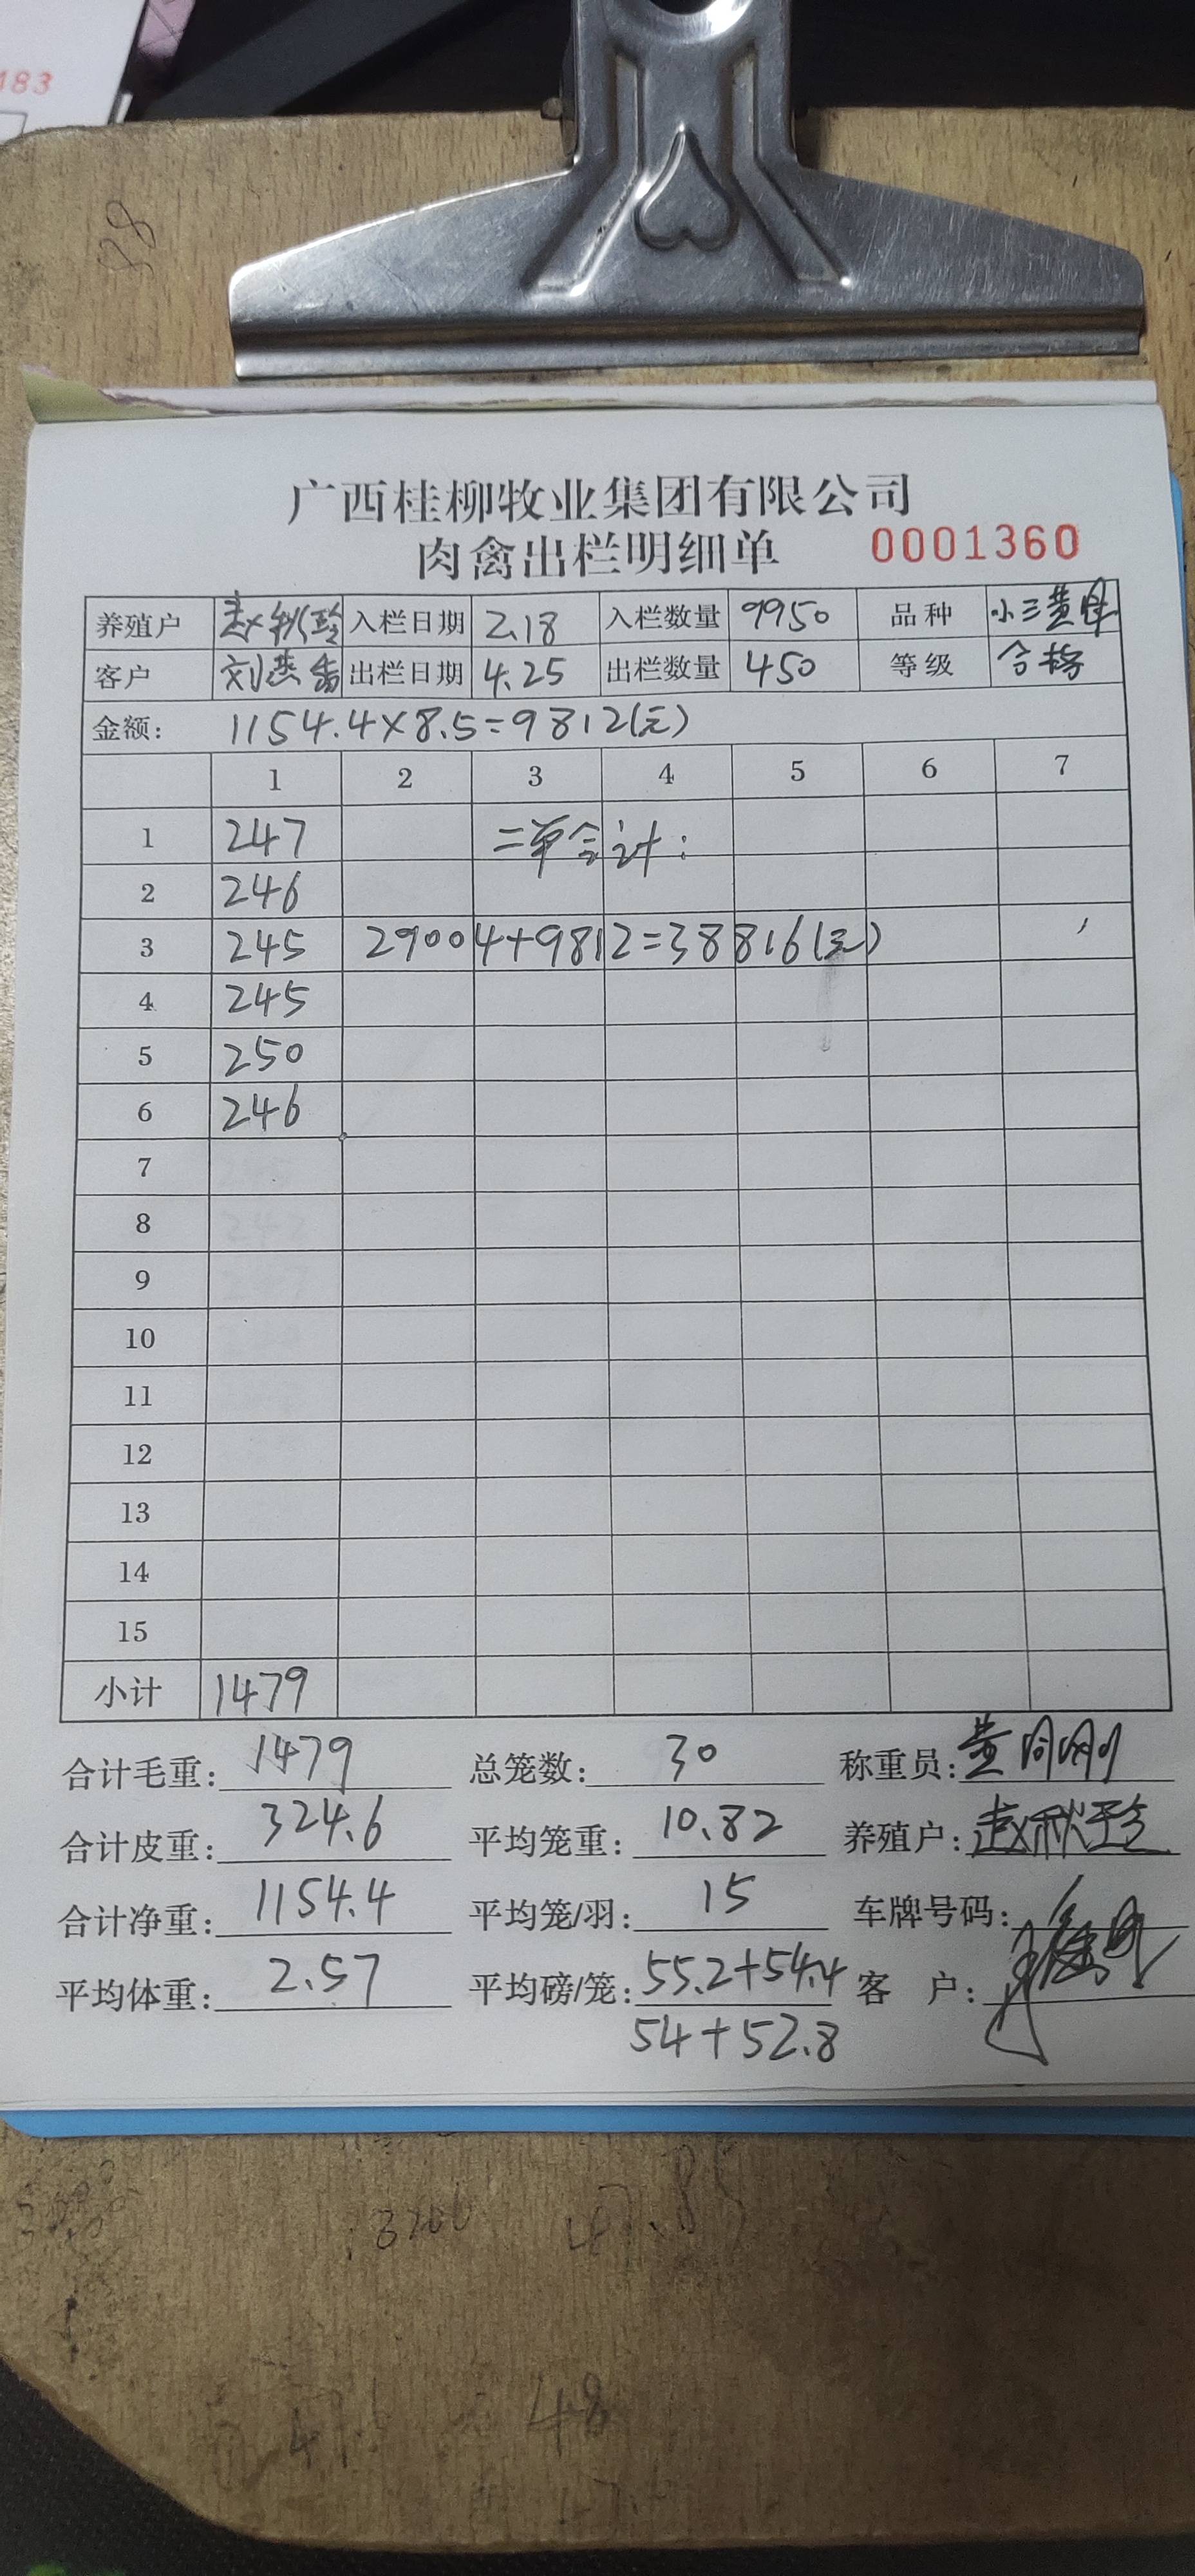 483
98
广西桂柳牧业集团有限公司
肉禽出栏明细单 0001360
养殖户 赵秋珍 入栏日期 2.18 入栏数量 9950 品种 小三黄母
客户 刘燕香 出栏日期 4.25 出栏数量 450 等级 合格
金额: 1154.4×8.5=9812(元)
1 2 3 4 5 6 7
1 247 二单合计:
2 246
3 245 29004+9812=38816(元)
4 245
5 250
6 246
7
8
9
10
11
12
13
14
15
小计 1479
合计毛重: 1479 总笼数: 30 称重员:
合计皮重: 324.6 平均笼重: 10.82 养殖户: 赵秋珍
合计净重: 1154.4 平均笼/羽: 15 车牌号码:
平均体重: 2.57 平均磅/笼: 55.2+54.4 客 户:
54+52.8
48